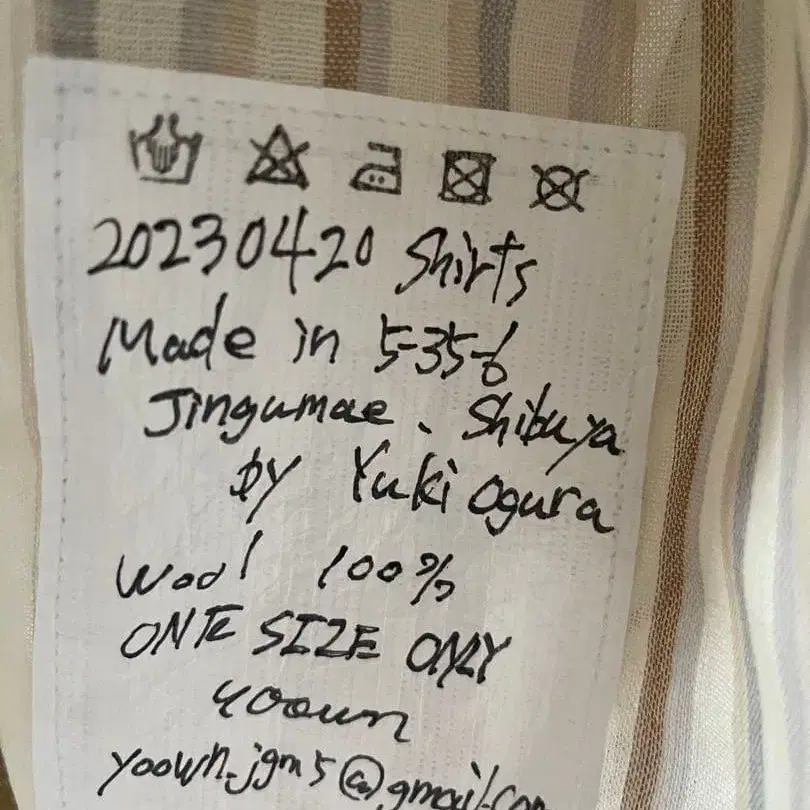 20230420 Shirts
Made in 5-35-6
Jingumae、Shibuya
by Yuki Ogura
Wool 100%
ONE SIZE ONLY
yoown
yoown.jgm5@gmail.com